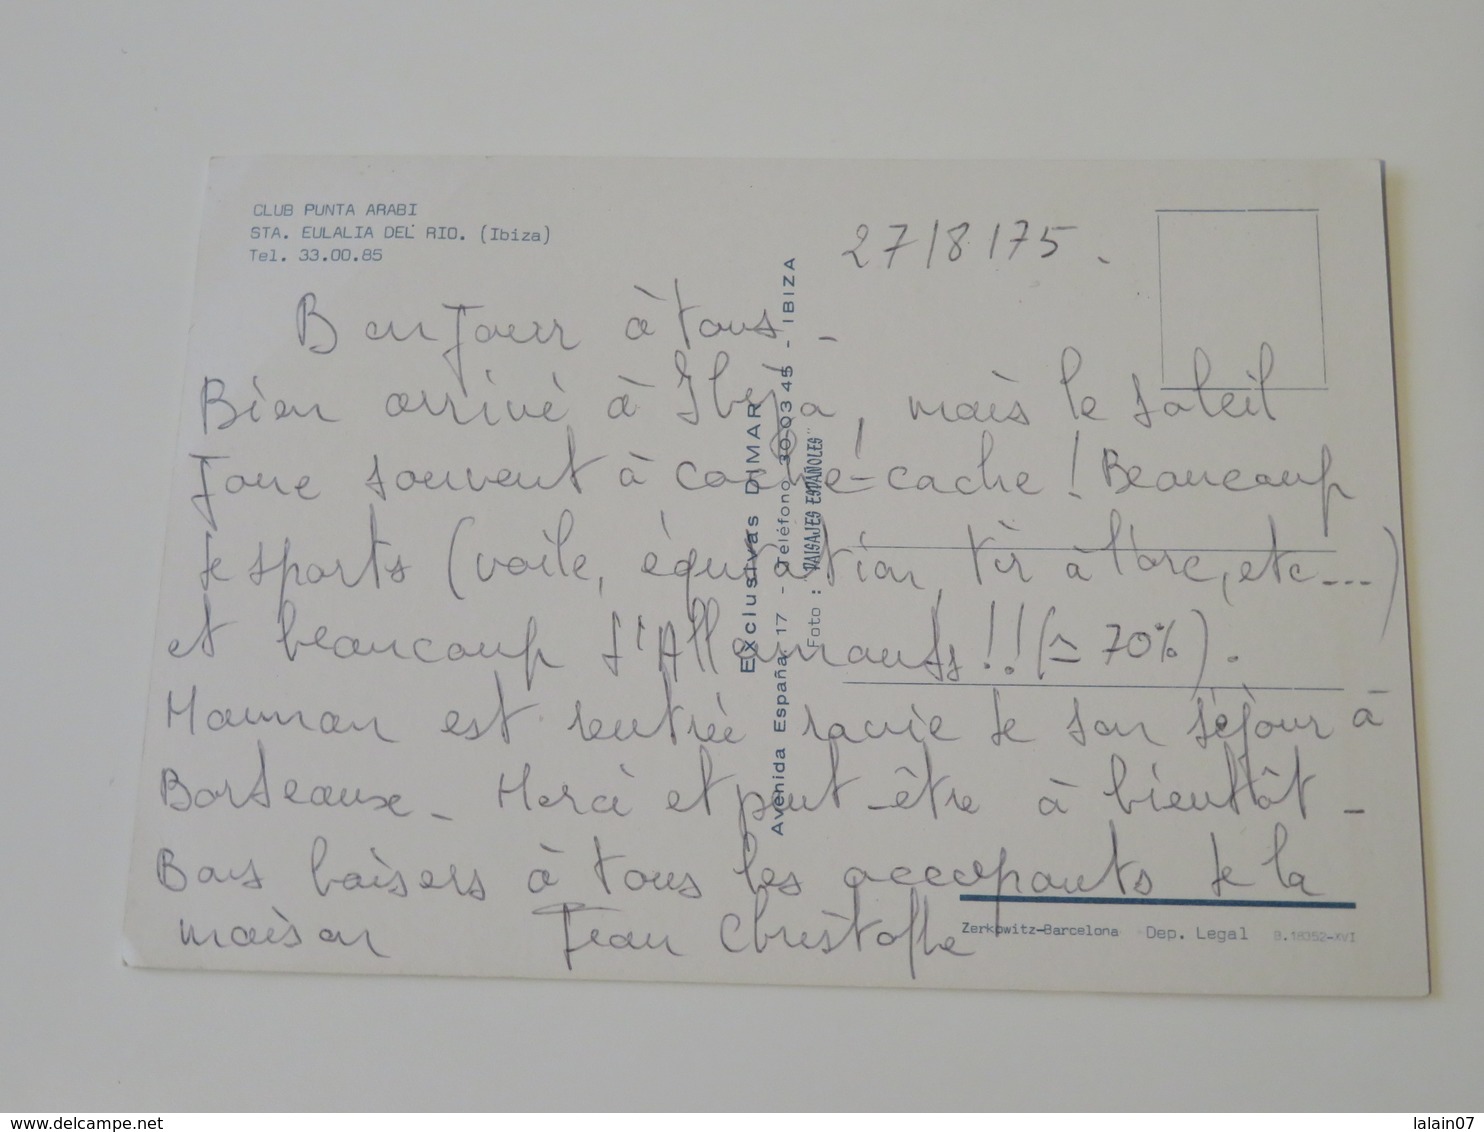 CLUB PUNTA ARABI
STA. EULALIA DEL RIO. (Ibiza)
Tel. 33.00.85
27/8/75.
Bonjour à tous -
Bien arrivé à Ibiza, mais le soleil
joue souvent à cache-cache ! Beaucoup
de sports (voile, équitation, tir à l'arc, etc ...)
et beaucoup d'Allemands !! (≃ 70%).
Maman est rentrée ravie de son séjour à
Bordeaux - Merci et peut-être à bientôt -
Bons baisers à tous les occupants de la
maison Jean Christophe
Exclusivas DIMAR
Avenida España, 17 - Teléfono 30 03 45 - IBIZA
Foto : "PAISAJES ESPAÑOLES"
Zerkowitz-Barcelona Dep. Legal B.18352-XVI
delcampe.net
lalain07